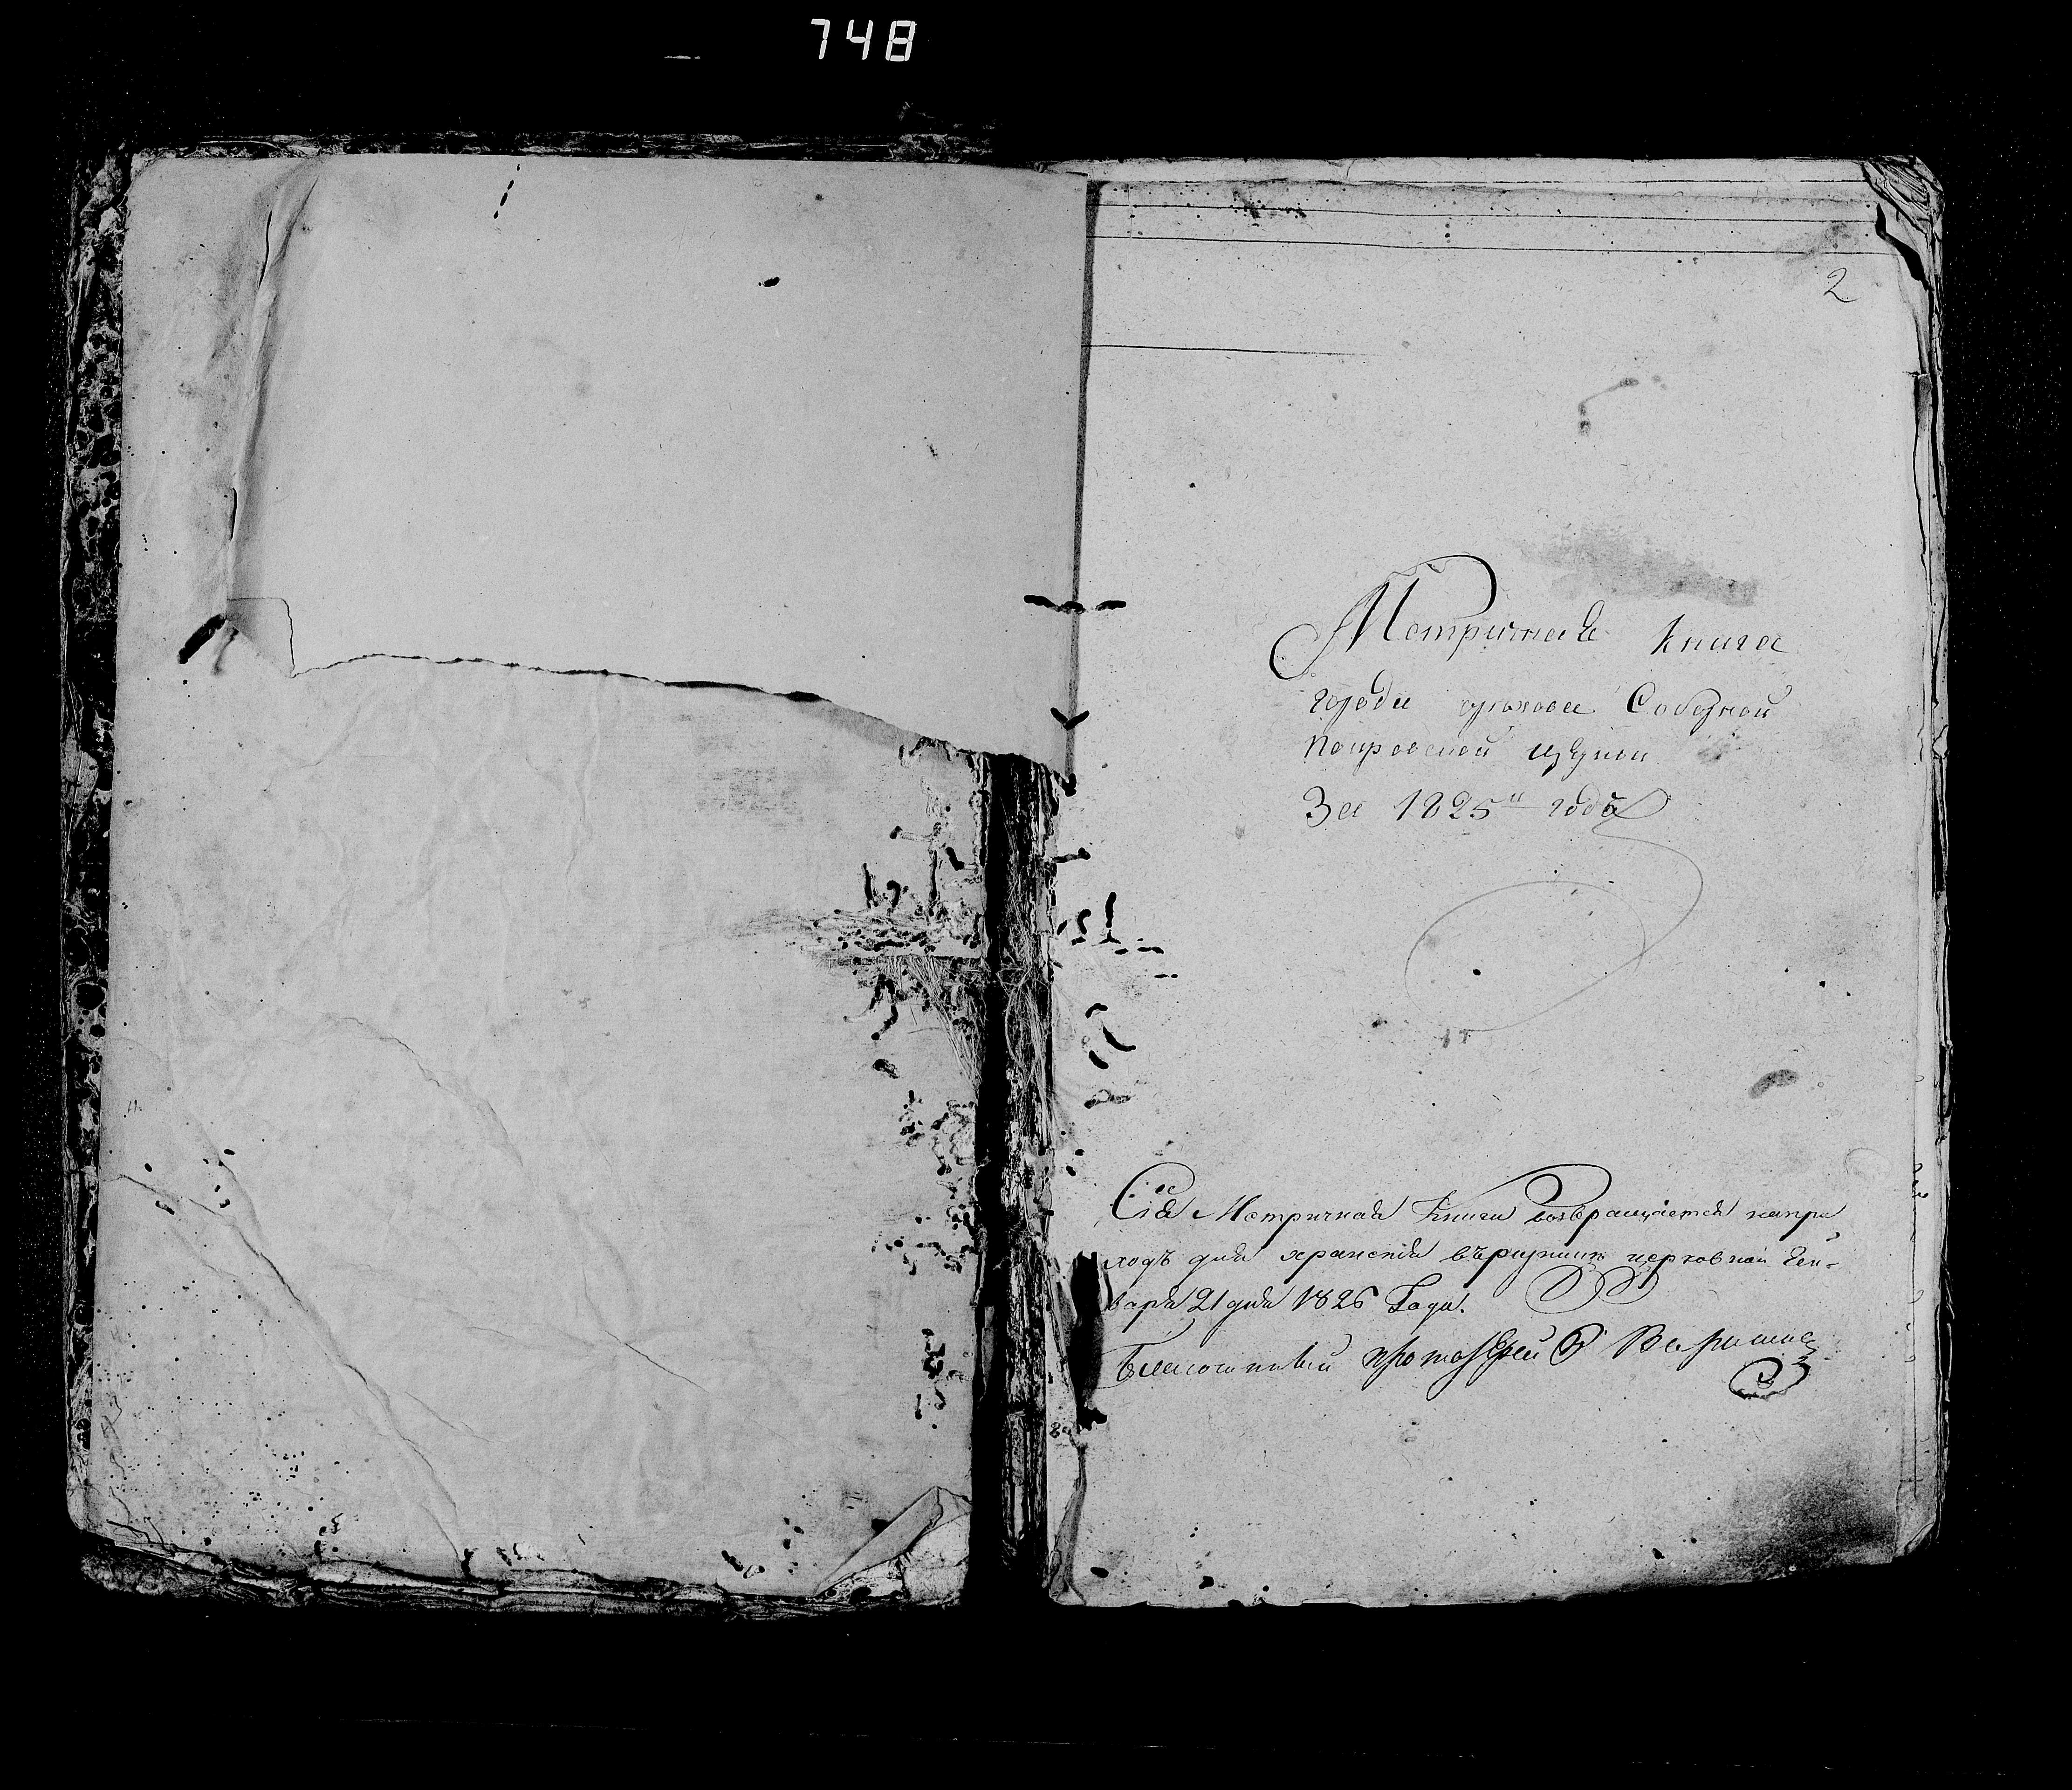 748
2
Метричная книга
города орѣхова Соборной
покровской церкви
За 1825й годъ
Сія Метричная Книга возвращается напри
ходъ для храненія въ ризницѣ церковной Ген-
варя 21 дня 1826 Года.
Благочинный протоіерей